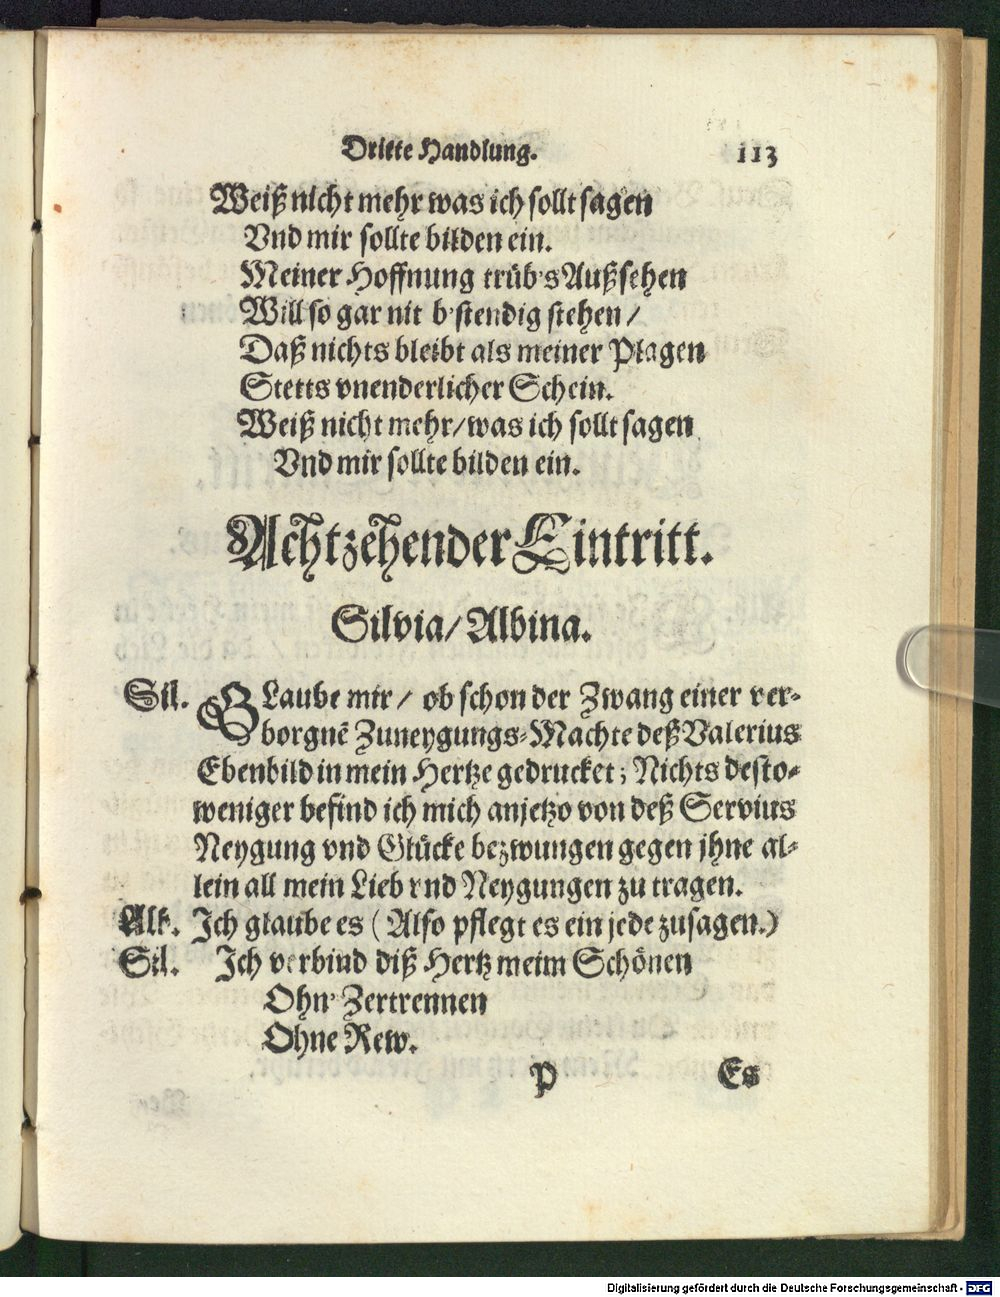 Dritte Handlung. 113
Weiß nicht mehr was ich sollt sagen
Vnd mir sollte bilden ein.
Meiner Hoffnung trüb's Außsehen
Will so gar nit b'stendig stehen /
Daß nichts bleibt als meiner Plagen
Stetts vnenderlicher Schein.
Weiß nicht mehr / was ich sollt sagen
Vnd mir sollte bilden ein.
Achtzehender Eintritt.
Silvia / Albina.
Sil. GLaube mir / ob schon der Zwang einer ver-
borgnē Zuneygungs-Machte deß Valerius
Ebenbild in mein Hertze gedrucket; Nichts desto-
weniger befind ich mich anjetzo von deß Servius
Neygung vnd Glücke bezwungen gegen jhne al-
lein all mein Lieb vnd Neygungen zu tragen.
Alb. Ich glaube es (Also pflegt es ein jede zusagen.)
Sil. Ich verbind diß Hertz meim Schönen
Ohn' Zertrennen
Ohne Rew.
P Es
Digitalisierung gefördert durch die Deutsche Forschungsgemeinschaft - DFG